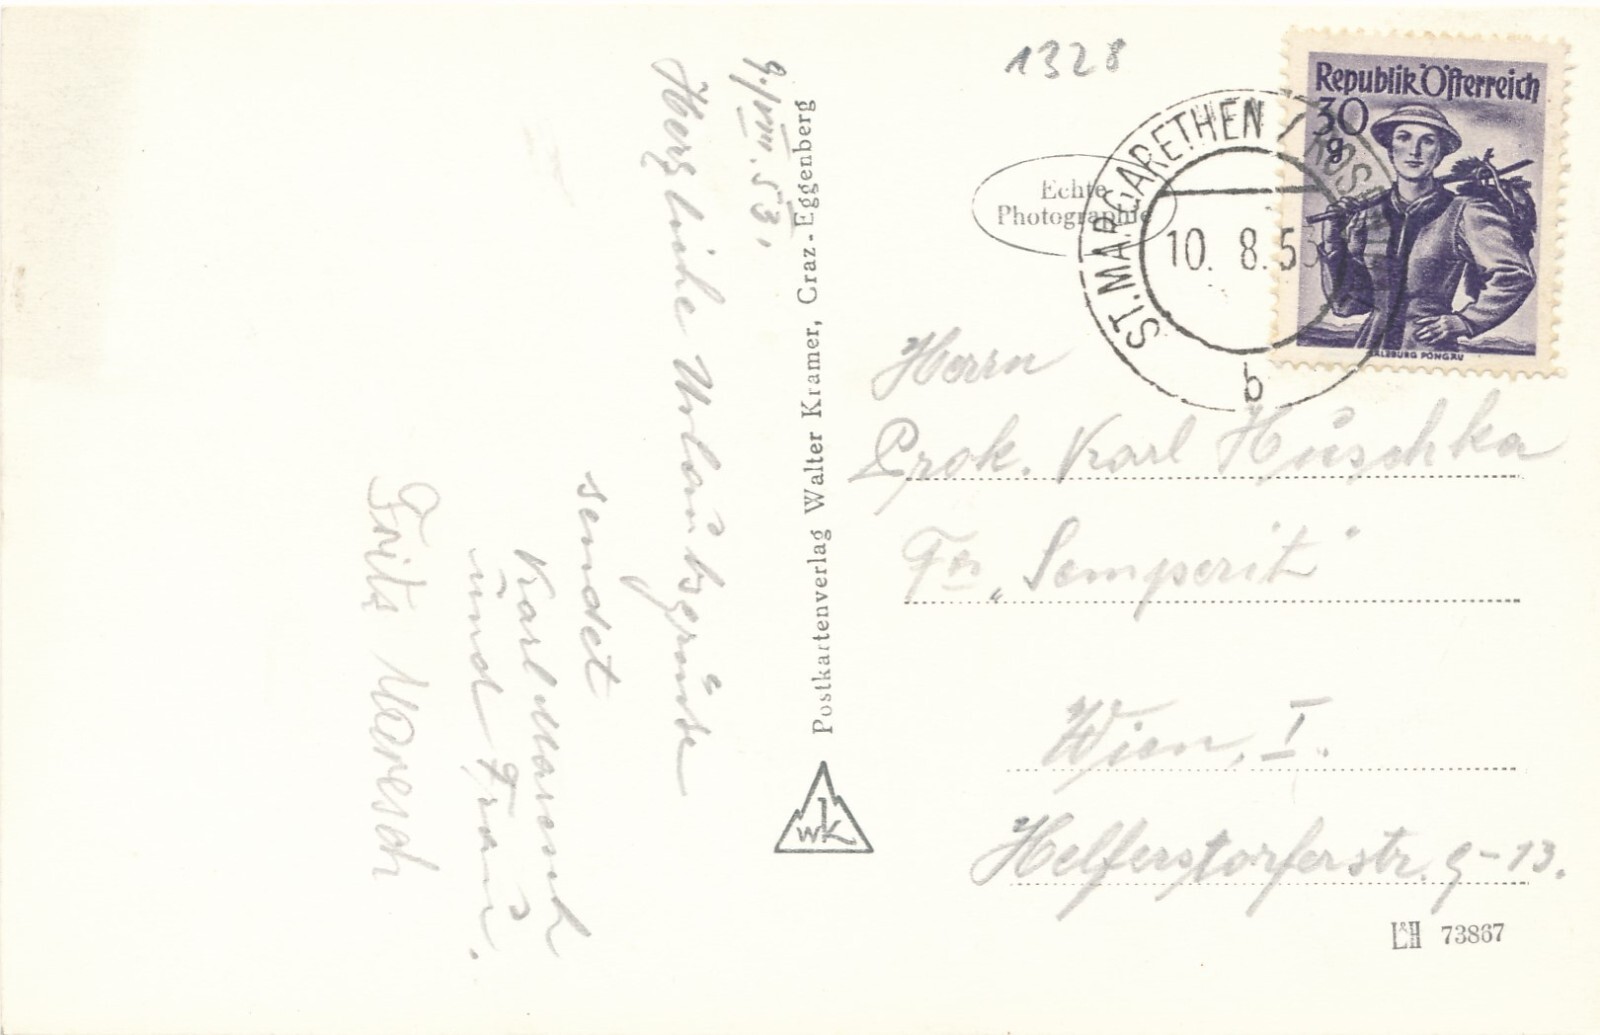 9./VIII. 53.
Herzliche Urlaubsgrüße
sendet
Karl Maresch
und Frau.
Fritz Maresch
Postkartenverlag Walter Kramer, Graz-Eggenberg
WK
1328
Echte
Photographie
ST. MARGARETHEN / ROSEN
10. 8. 53
b
Republik Österreich
30
g
SALZBURG PONGAU
Herrn
Prok. Karl Huschka
Fa „Semperit"
Wien, I.
Helferstorferstr. 9-13.
L&H 73867